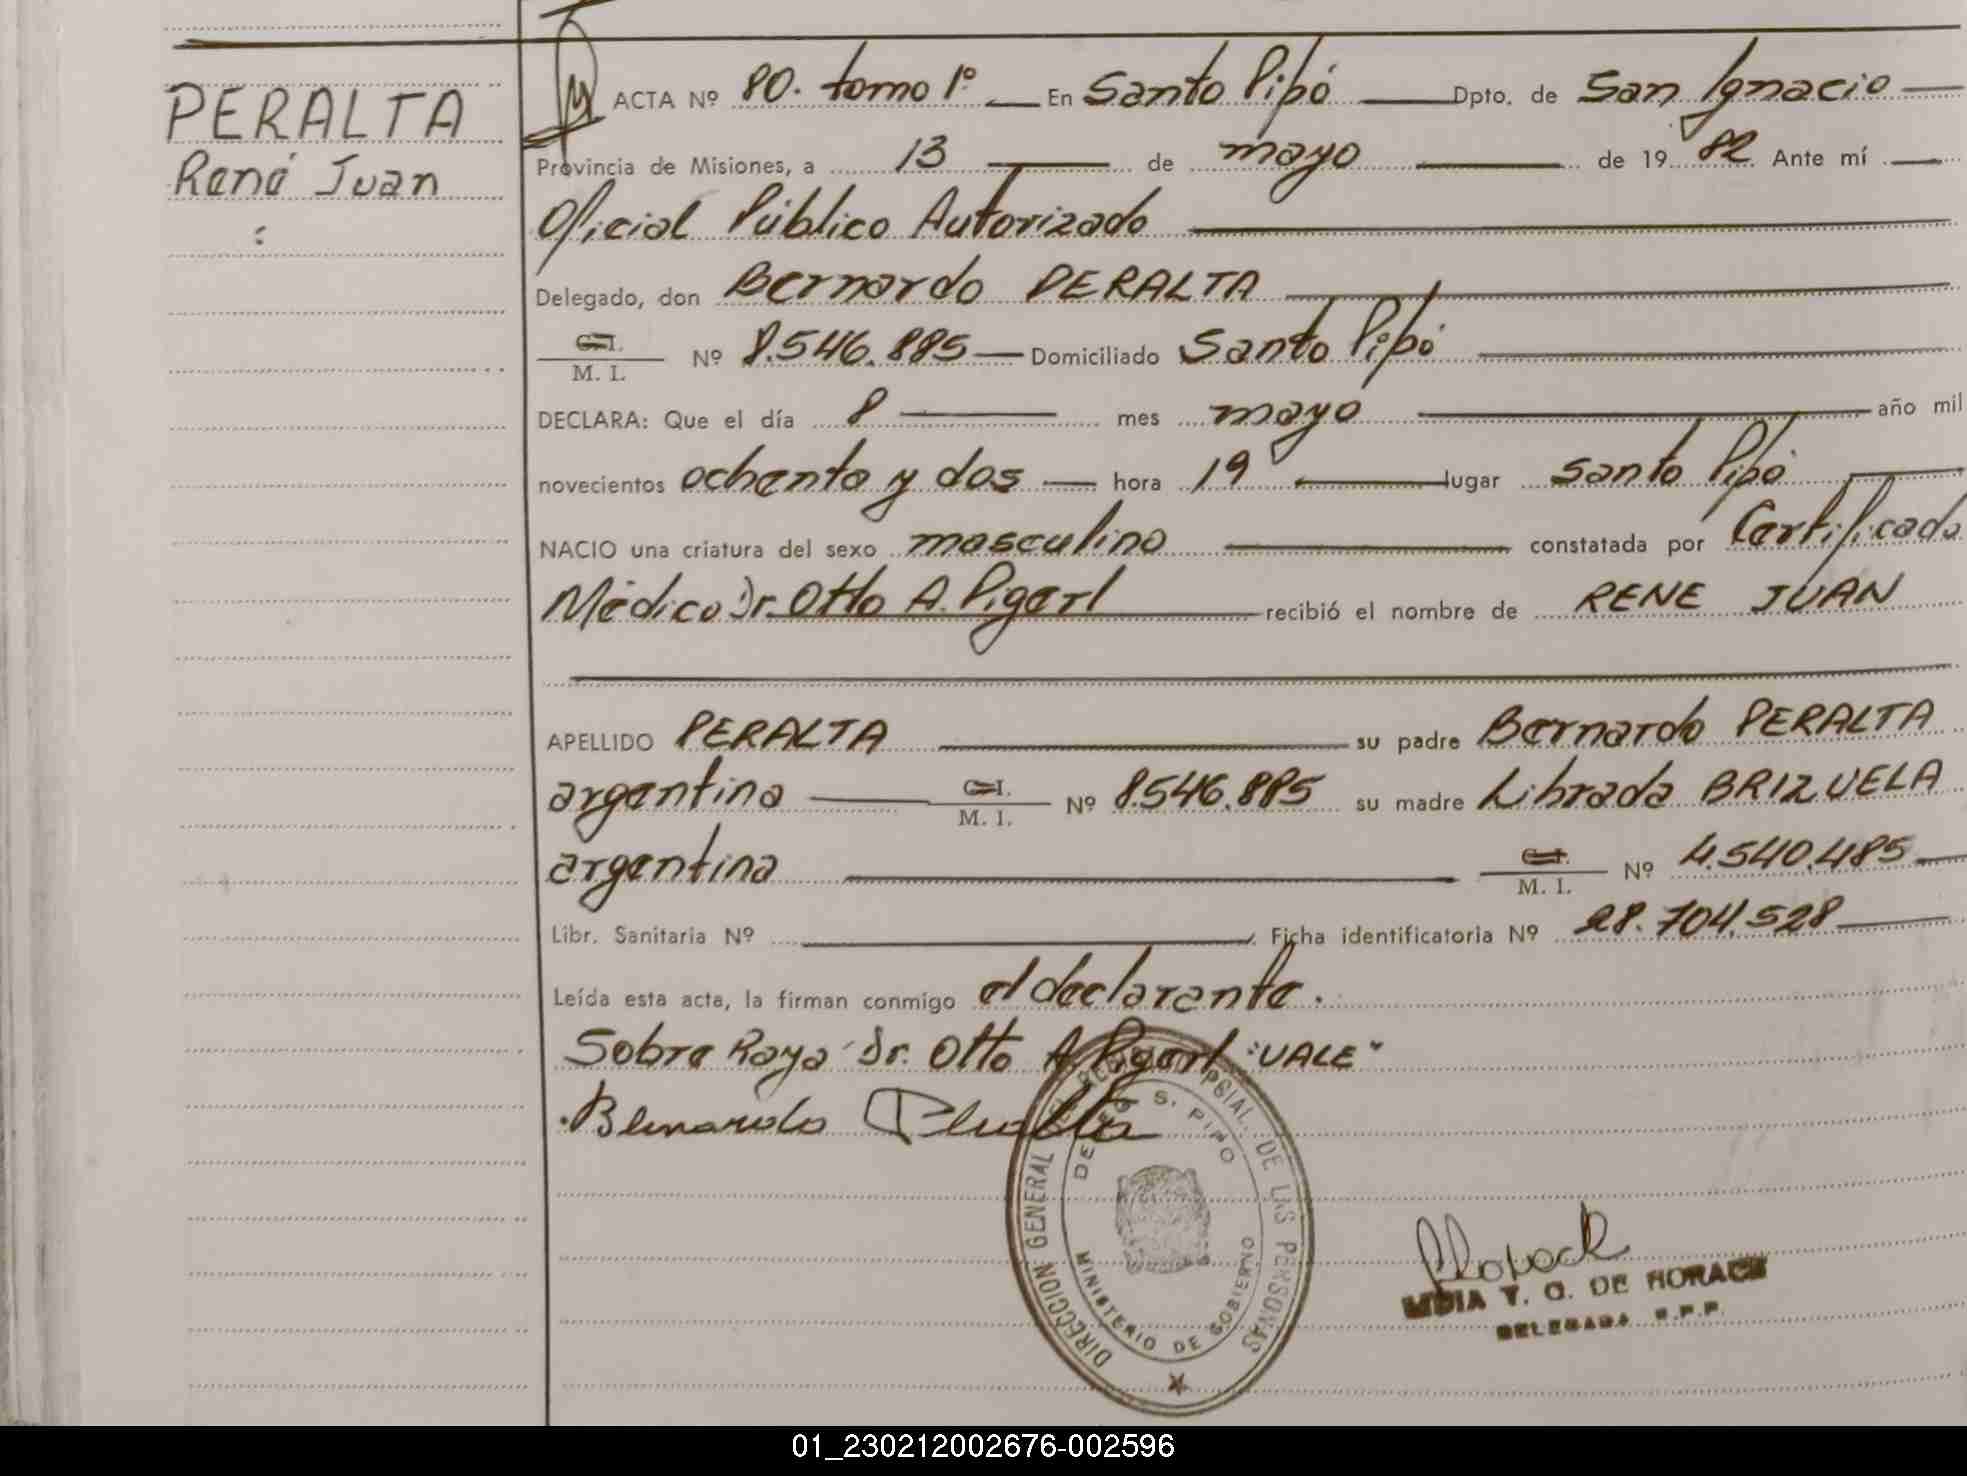 PERALTA
René Juan
:
ACTA Nº 80. tomo 1º En Santo Pipó Dpto. de San Ignacio
Provincia de Misiones, a 13 de mayo de 1982 Ante mí
Oficial Público Autorizado
Delegado, don Bernardo PERALTA
C.I. M. I. Nº 8.546.885 Domiciliado Santo Pipó
DECLARA: Que el día 8 mes mayo año mil
novecientos ochenta y dos hora 19 lugar Santo Pipó
NACIO una criatura del sexo masculino constatada por Certificado
Médico Dr. Otto A. Pigerl recibió el nombre de RENE JUAN
APELLIDO PERALTA su padre Bernardo PERALTA
argentina C.I. M. I. Nº 8.546.885 su madre Librada BRIZUELA
argentina C.I. M. I. Nº 4.540.485
Libr. Sanitaria Nº Ficha identificatoria Nº 28.704.528
Leída esta acta, la firman conmigo el declarante.
Sobre Raya Dr. Otto A. Pigerl "VALE"
Bernardo Peralta
DIRECCION GENERAL DEL REGISTRO PCIAL. DE LAS PERSONAS
DELEG. S. PIPO
MINISTERIO DE GOBIERNO
LIDIA T. O. DE HORACK
DELEGADA R.P.P.
01_230212002676-002596